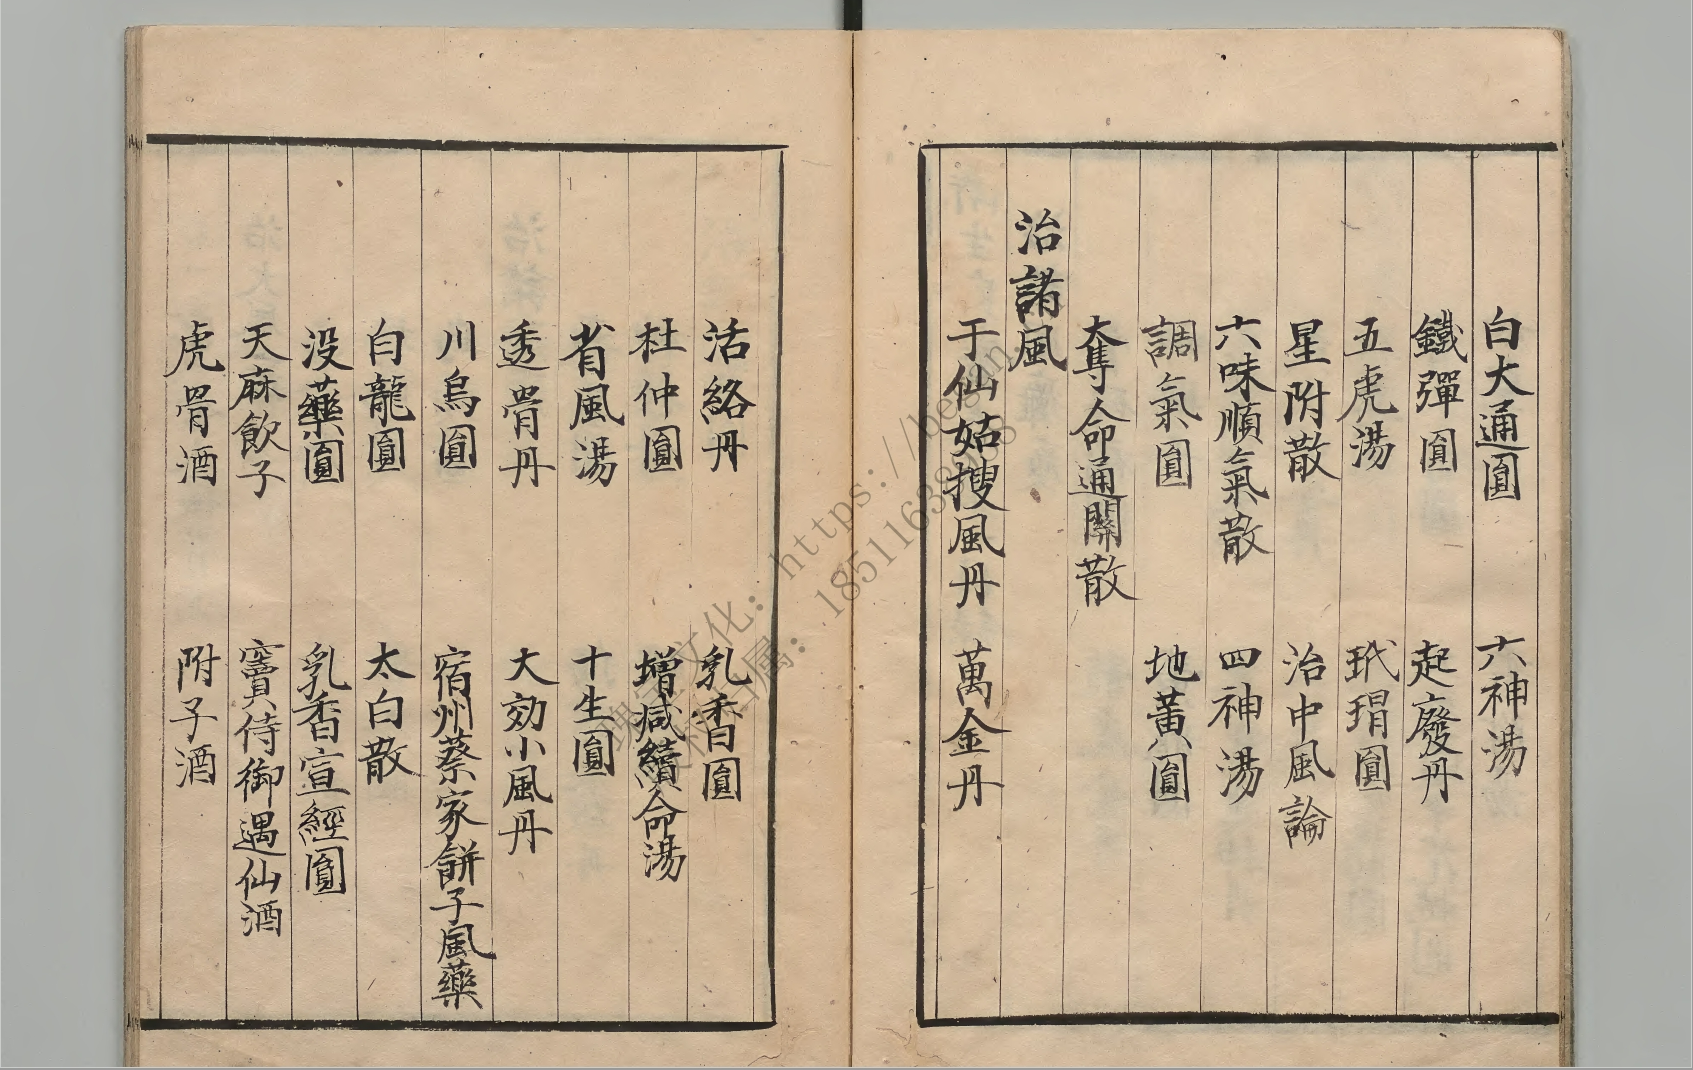 白大通圓　六神湯
鐵彈圓　起廢丹
五虎湯　玳瑁圓
星附散　治中風論
六味順氣散　四神湯
調氣圓　地黃圓
奪命通關散
治諸風
于仙姑搜風丹　萬金丹
活絡丹　乳香圓
杜仲圓　增減續命湯
省風湯　十生圓
透骨丹　大効小風丹
川烏圓　宿州蔡家餅子風藥
白龍圓　太白散
没藥圓　乳香宣經圓
天麻飲子　竇侍御遇仙酒
虎骨酒　附子酒